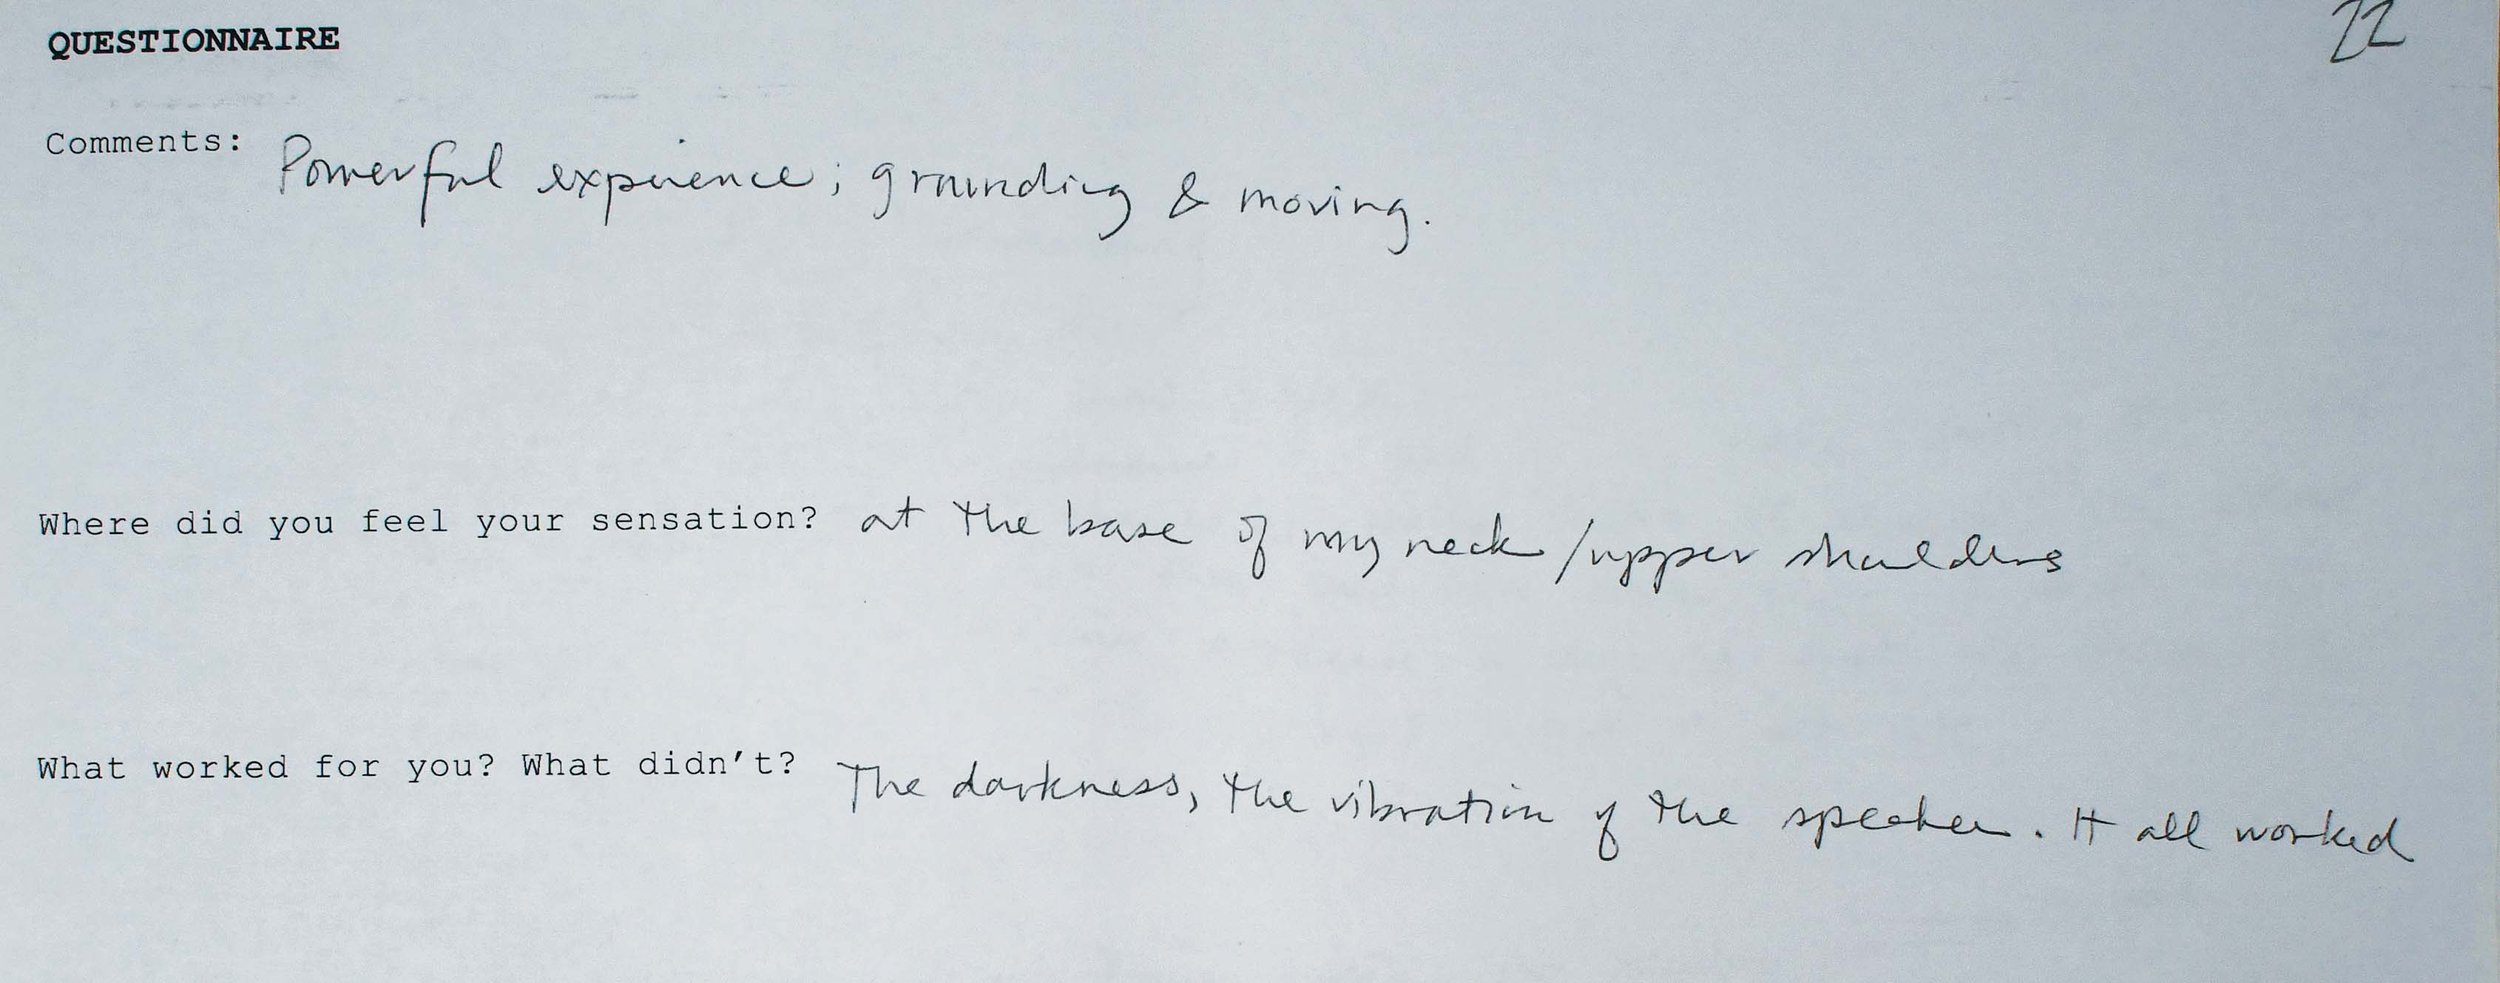 QUESTIONNAIRE 22
Comments: Powerful experience; grounding & moving.
Where did you feel your sensation? at the base of my neck/upper shoulders
What worked for you? What didn't? The darkness, the vibration of the speaker. It all worked